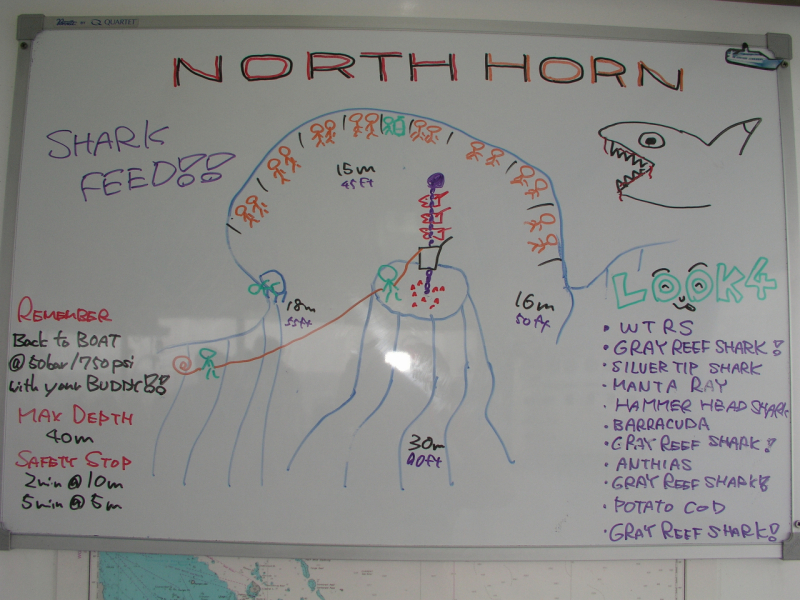 QUARTET
NORTH HORN
SHARK
FEED!!
15m
45ft
18m
55ft
16m
50ft
30m
90ft
REMEMBER
Back to BOAT
@ 50bar/750psi
with your BUDDY!!
MAX DEPTH
40m
SAFETY STOP
2min @ 10m
5min @ 5m
LOOK4
• WTRS
• GRAY REEF SHARK!
• SILVER TIP SHARK
• MANTA RAY
• HAMMER HEAD SHARK
• BARRACUDA
• GRAY REEF SHARK!
• ANTHIAS
• GRAY REEF SHARK!
• POTATO COD
• GRAY REEF SHARK!